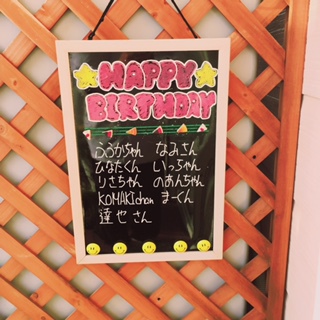 HAPPY
BIRTHDAY
ふうかちゃん なみさん
ひなたくん いっちゃん
りさちゃん のあんちゃん
KOMAKIchan まーくん
達也さん